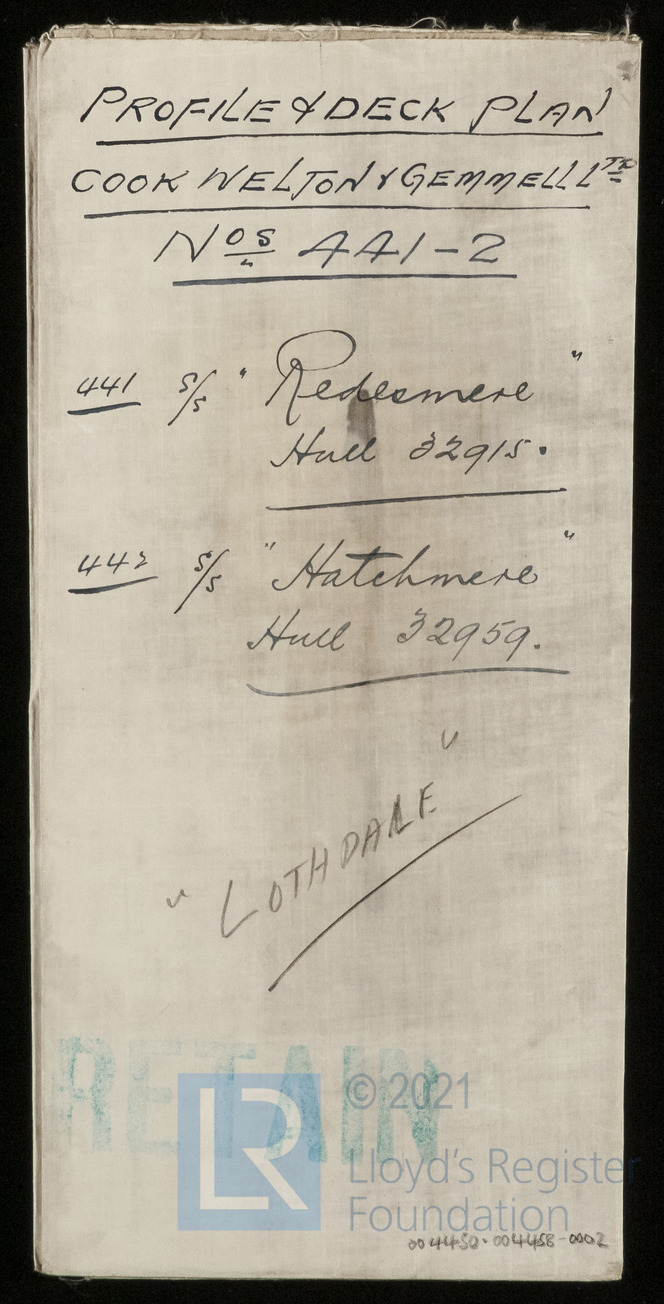 PROFILE & DECK PLAN
COOK WELTON & GEMMELL LTD
Nos 441-2
441 S/S "Redesmere"
Hull 32915.
442 S/S "Hatchmere"
Hull 32959.
"LOTHDALE"
RETAIN
LR
© 2021
Lloyd's Register
Foundation
004450-004458-0002